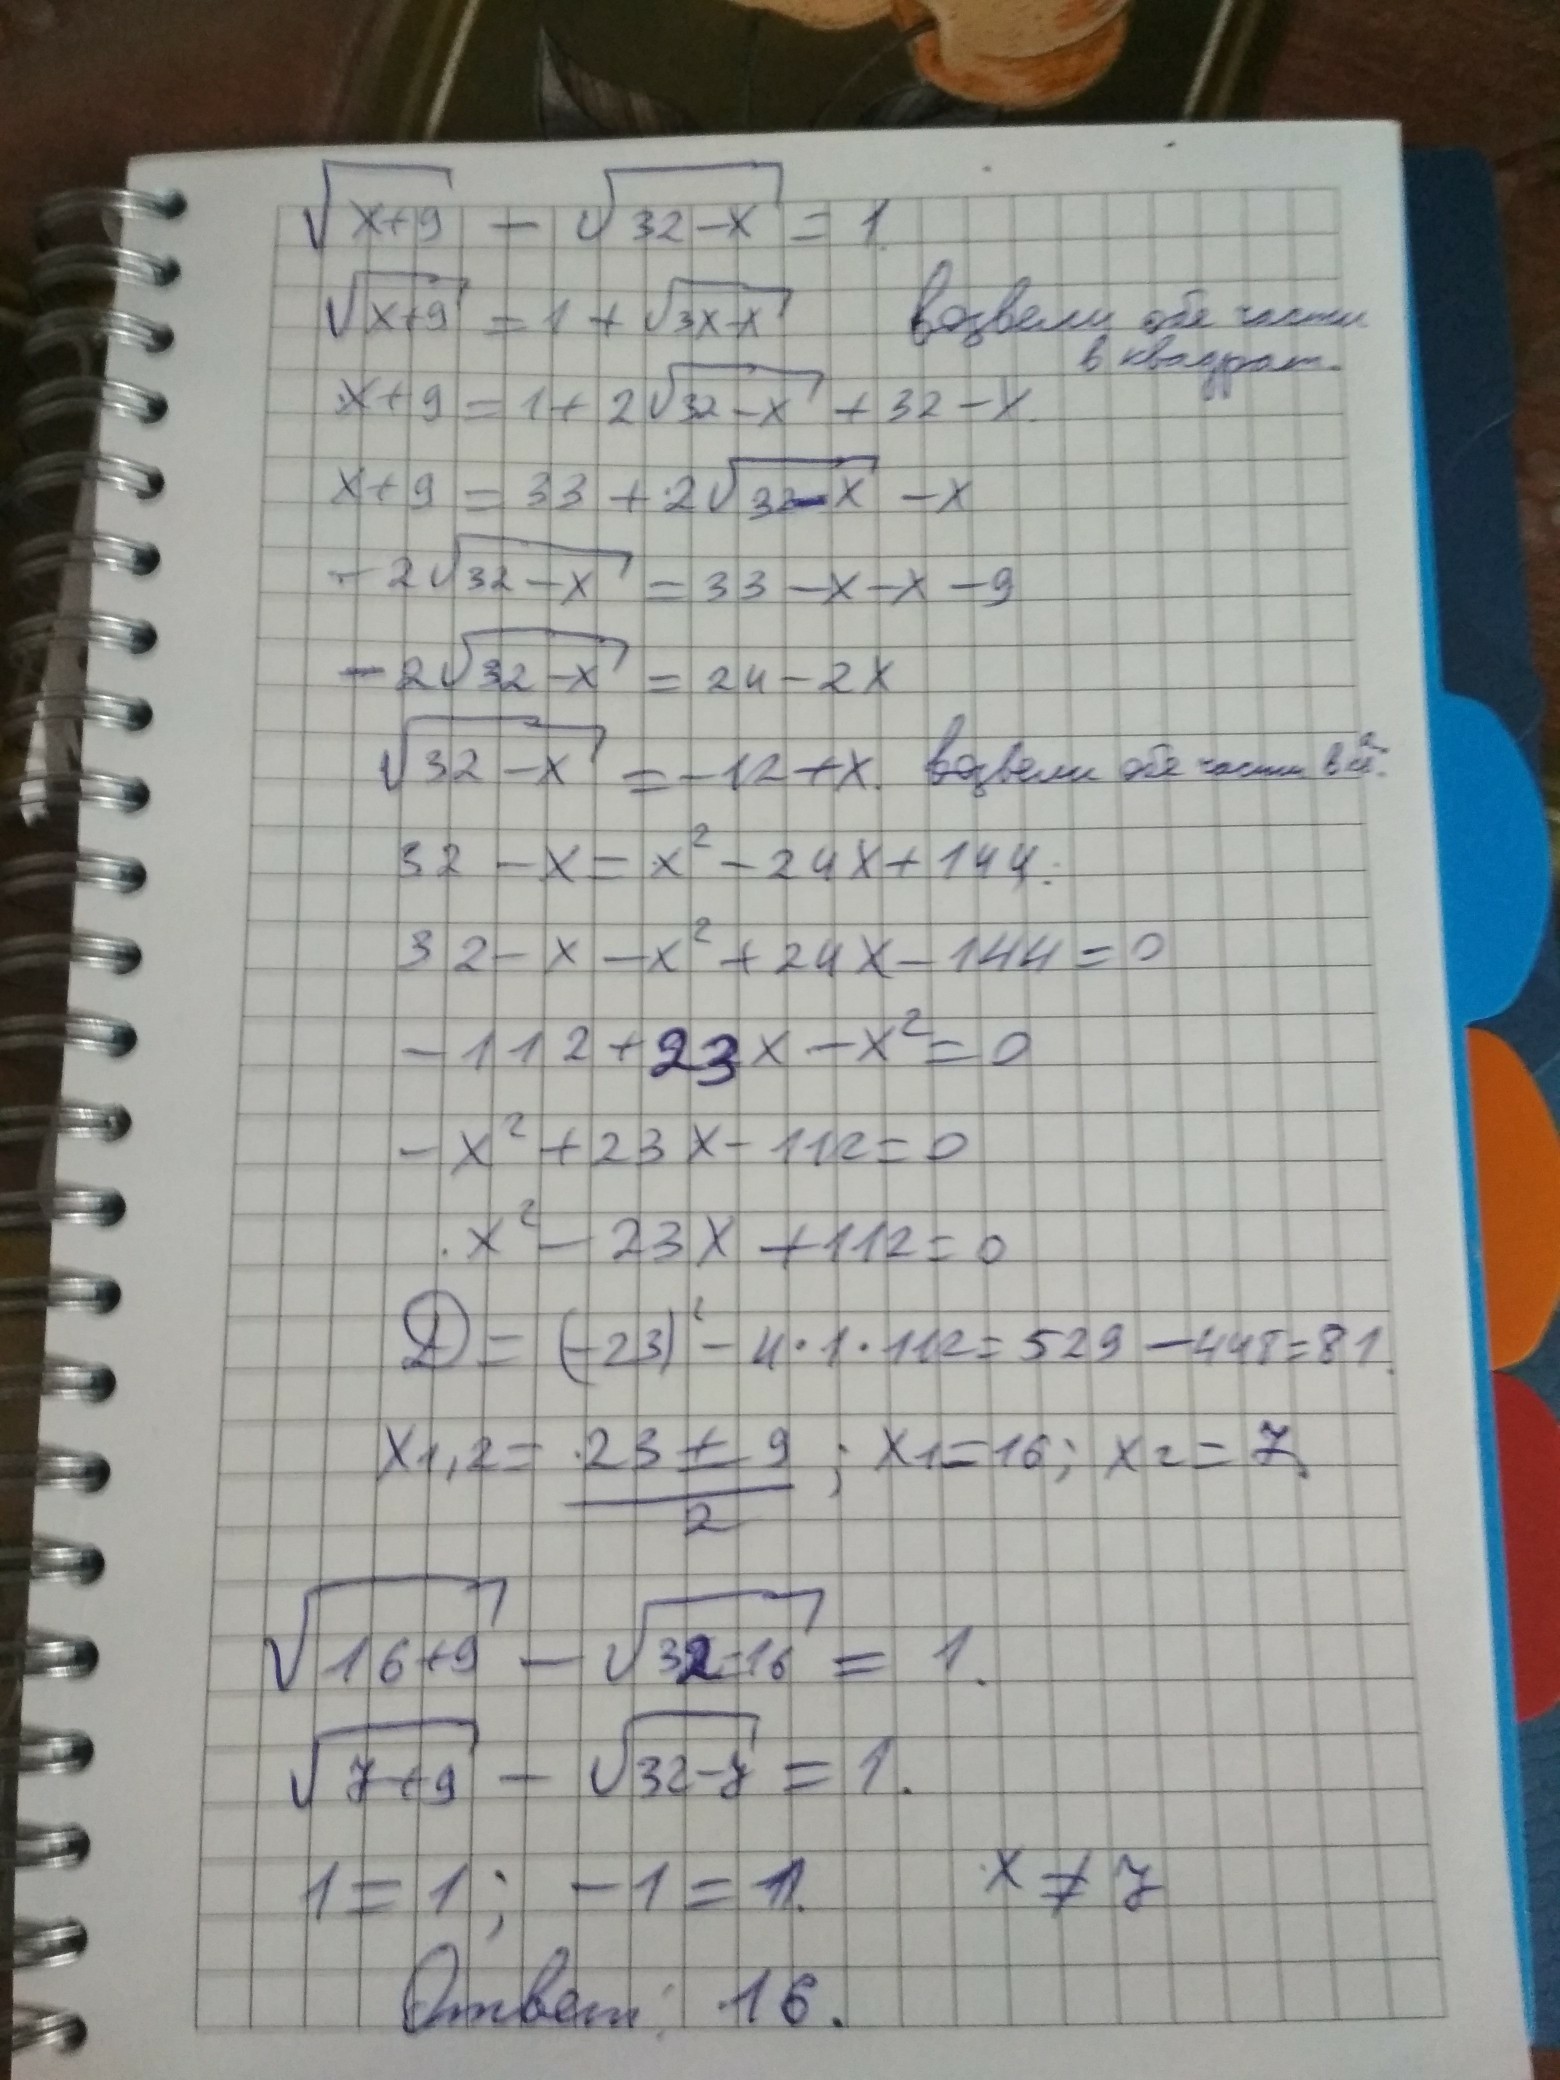 √(x+9) − √(32−x) = 1.
√(x+9) = 1 + √(3x−x) Возвели обе части
в квадрат.
x+9 = 1 + 2√(32−x) + 32 − x.
x+9 = 33 + 2√(32−x) − x
−2√(32−x) = 33 − x − x − 9
−2√(32−x) = 24 − 2x
√(32−x) = −12 + x. Возвели обе части в
32 − x = x² − 24x + 144.
32 − x − x² + 24x − 144 = 0
−112 + 23x − x² = 0
−x² + 23x − 112 = 0
x² − 23x + 112 = 0
D = (−23)² − 4·1·112 = 529 − 448 = 81.
x1,2 = (23 ± 9)/2; x1 = 16; x2 = 7
√(16+9) − √(32−16) = 1.
√(7+9) − √(32−7) = 1.
1 = 1; −1 = 1. x ≠ 7
Ответ: 16.